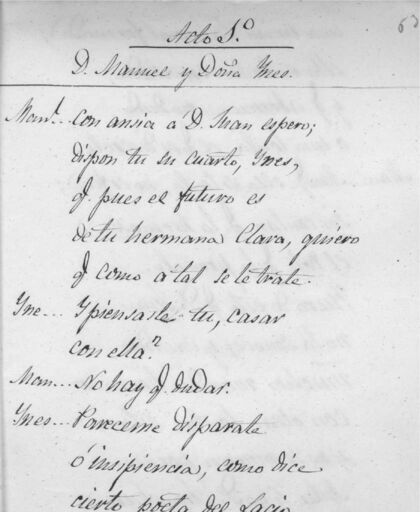 63
Acto 5.º
D. Manuel y Doña Ynes.
Man.l... Con ansia a D. Juan espero;
dispon tu su cuarto, Ynes,
q. pues el futuro es
de tu hermana Clara, quiero
q. como á tal se le trate.
Yne... Y piensasle tu, casar
con ella?
Man... No hay q. dudar.
Ynes... Pareceme disparate
ó insipiencia, como dice
cierto poeta del Lacio